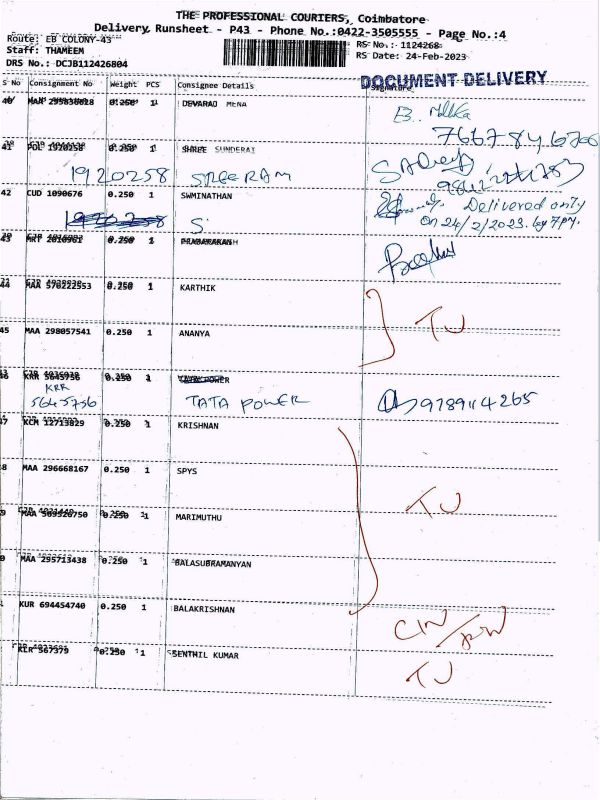 THE PROFESSIONAL COURIERS, Coimbatore
Delivery Runsheet - P43 - Phone No.:0422-3505555 - Page No.:4
Route: EB COLONY-43
Staff: THAMEEM
DRS No.: DCJB112426804
RS No.: 1124268
RS Date: 24-Feb-2023
DOCUMENT DELIVERY
S No Consignment No Weight PCS Consignee Details Signature
40 0.250 1 DEVARAO MENA
7667846706
41 0.250 1 SHREE SUNDERAI
1920258 SREERAM
42 CUD 1090676 0.250 1 SWMINATHAN
Delivered only
on 24/2/2023. by 7pm.
43 MRT 2010961 0.250 1 PRABAKARAN
MAA 570222553 0.250 1 KARTHIK
TU
45 MAA 298057541 0.250 1 ANANYA
KRR 5645756 0.250 1
KRR
5645756 TATA POWER 9789114265
KCM 12713829 0.250 1 KRISHNAN
8 MAA 296668167 0.250 1 SPYS
TU
9 MAA 569520750 0.250 1 MARIMUTHU
0 MAA 295713438 0.250 1 BALASUBRAMANYAN
KUR 694454740 0.250 1 BALAKRISHNAN
KLR 567379 0.250 1 SENTHIL KUMAR
TU